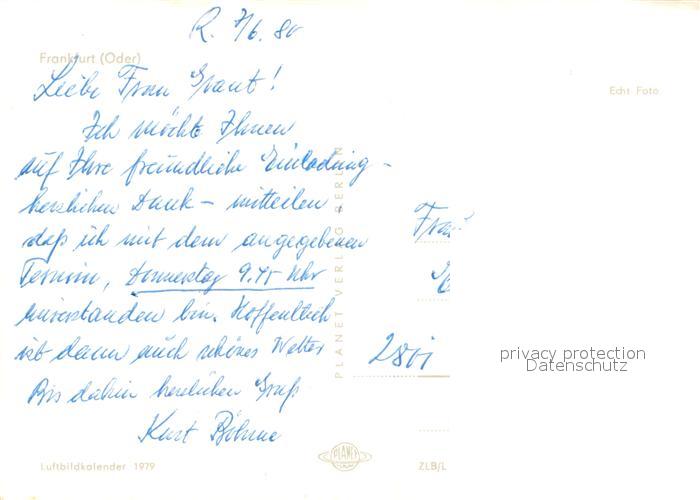 R. 7/6. 80
Frankfurt (Oder)
Liebe Frau Grant!
Echt Foto
Ich möchte Ihnen
auf Ihre freundliche Einladung -
herzlichen Dank - mitteilen
daß ich mit dem angegebenen
Termin, Donnerstag 9.45 Uhr
einverstanden bin. Hoffentlich
ist dann auch schönes Wetter
Bis dahin herzlichen Gruß
Kurt Böhme
PLANET VERLAG BERLIN
Frau
privacy protection
Datenschutz
PLANET
Luftbildkalender 1979
ZLB/L